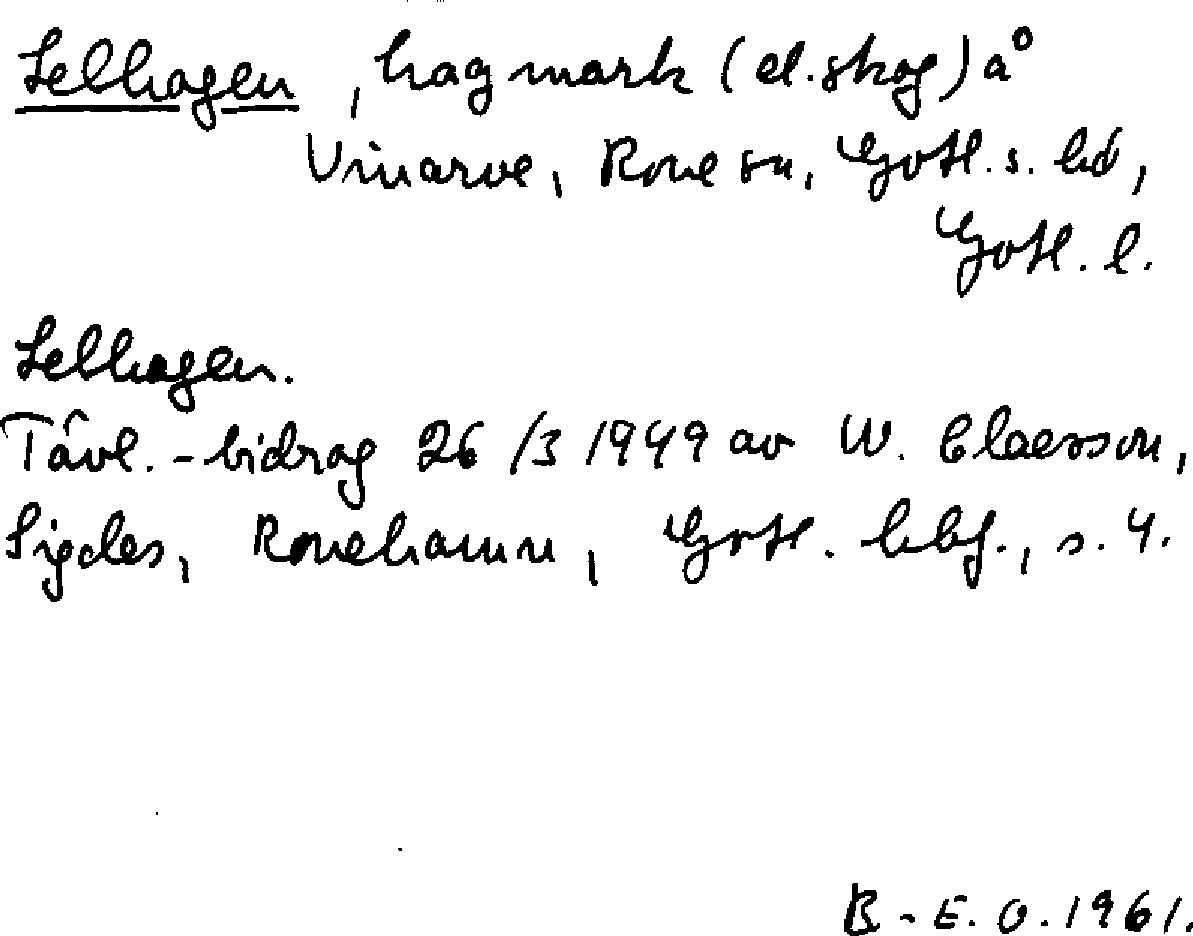 Selhagen, hagmark (el. skog) å
Vinarve, Rone sn, Gotl. s. hd,
Gotl. l.
Selhagen.
Tävl.-bidrag 26/3 1949 av W. Claesson,
Sigdes, Ronehamn, Gotl. hbf., s. 4.
B-E. O. 1961.